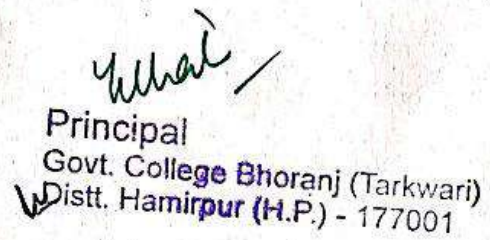 Principal
Govt. College Bhoranj (Tarkwari)
Distt. Hamirpur (H.P.) - 177001